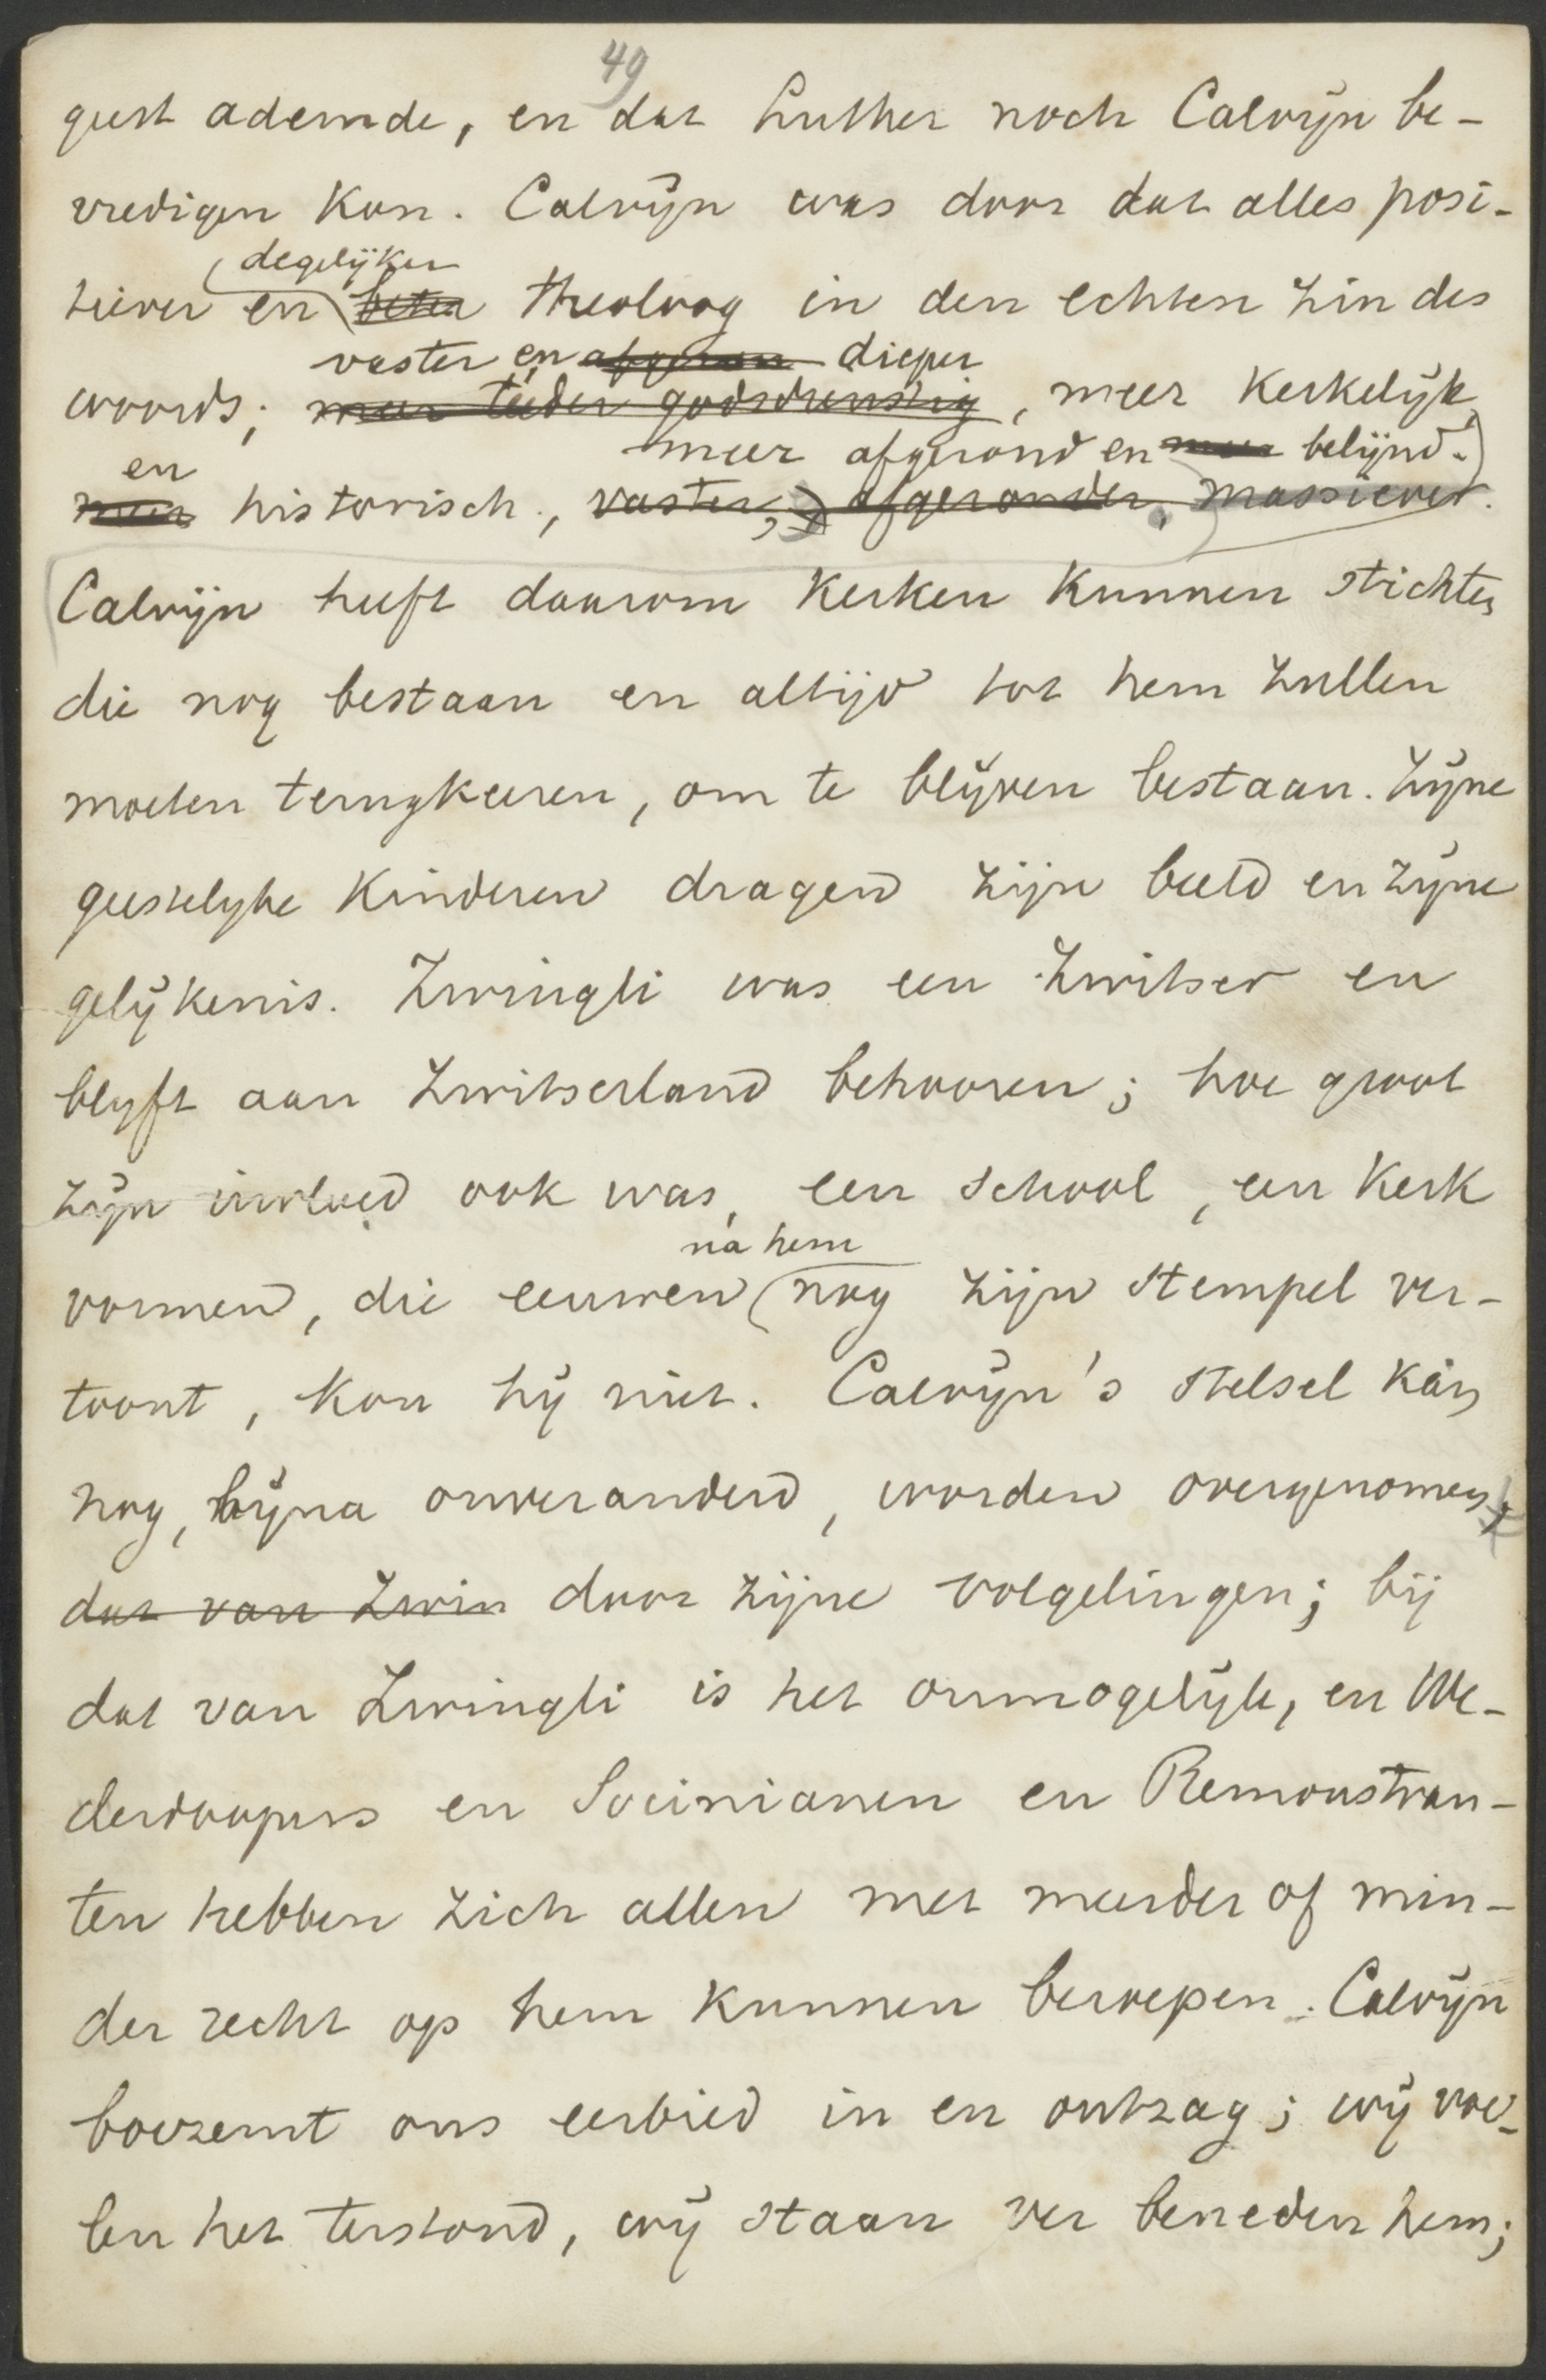 49
geest ademde, en dat Luther noch Calvijn be-
vredigen kon. Calvijn was door dat alles posi-
degelijker
tiever en beter theoloog in den echten zin des
vaster en afgeron dieper
woords; meer teeder godsdienstig, meer kerkelijk
meer afgerond en meer belijnd.
en
meer historisch, vaster, afgeronder, massiever.
Calvijn heeft daarom kerken kunnen stichten
die nog bestaan en altijd tot hem zullen
moeten terugkeeren, om te blijven bestaan. Zijne
geestelijke kinderen dragen zijn beeld en zijne
gelijkenis. Zwingli was een Zwitser en
blijft aan Zwitserland behooren; hoe groot
zijn invloed ook was, een school, een kerk
ná hem
vormen, die eeuwen nog zijn stempel ver-
toont, kon hij niet. Calvijn's stelsel kàn
nog, bijna onveranderd, worden overgenomen,
dat van Zwin door zijne volgelingen; bij
dat van Zwingli is het onmogelijk, en We-
derdoopers en Socinianen en Remonstran-
ten hebben zich allen met meerder of min-
der recht op hem kunnen beroepen. Calvijn
boezemt ons eerbied in en ontzag; wij voe-
len het terstond, wij staan ver beneden hem;